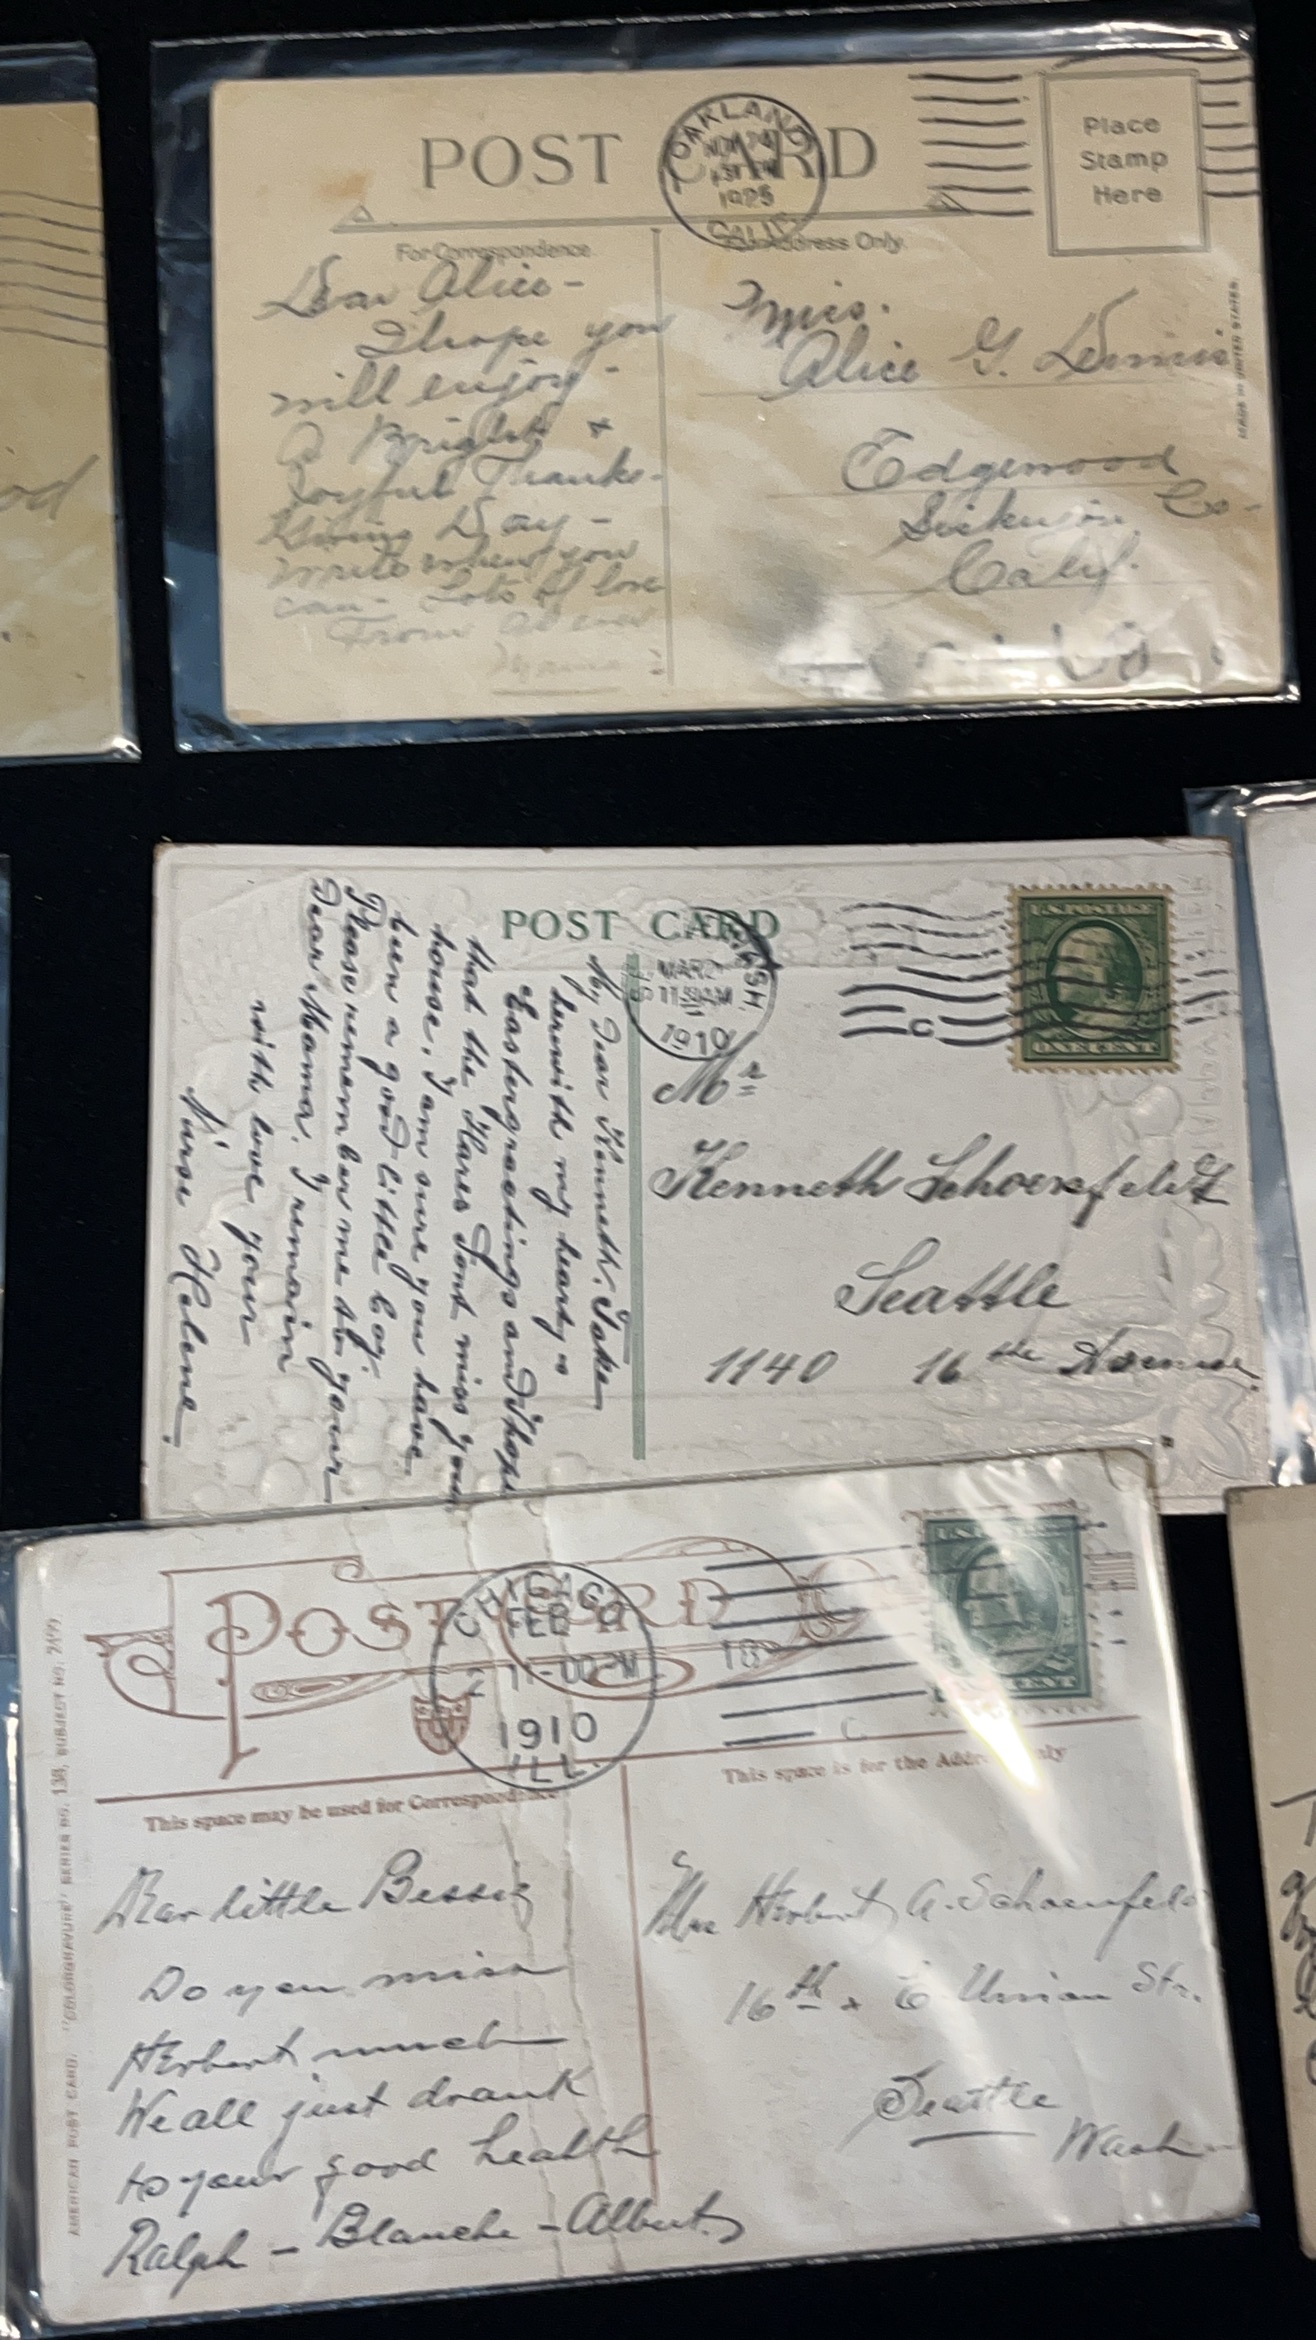 od
POST CARD
OAKLAND
NOV 24
1925
CALIF
Place
Stamp
Here
For Correspondence.
For Address Only.
MADE IN UNITED STATES
Dear Alice -
I hope you
will enjoy -
a Bright +
Joyful Thanks-
Giving Day -
write when you
can - Lots of love
From as ever
Miss.
Alice G. Dennis
Edgewood
Siskiyou Co -
Calif.
POST CARD
WASH.
MAR 2
11 30 AM
1910
C
U.S. POSTAGE
ONE CENT
My Dear Kenneth, Take
herewith my hearty
Eastergreetings and I hope
that the Hares dont miss your
house. I am sure you have
been a good little boy.
Please remember me to your
Dear Mama. I remain
with love your
Nurse Helene.
Mr
Kenneth Schoenfeldt
Seattle
1140 16th Avenue.
POST CARD
CHICAGO
FEB
11-00 PM
1910
ILL.
18
C
CENT
This space may be used for Correspondence
This space is for the Address only
AMERICAN POST CARD. "COLORGRAVURE" SERIES NO. 138, SUBJECT NO. 2499.
Dear little Bessie
Do you miss
Herbert much
We all just drank
to your good health
Ralph - Blanche - Albert.
Mrs Herbert A. Schoenfeld
16th + E Union Str.
Seattle
Wash